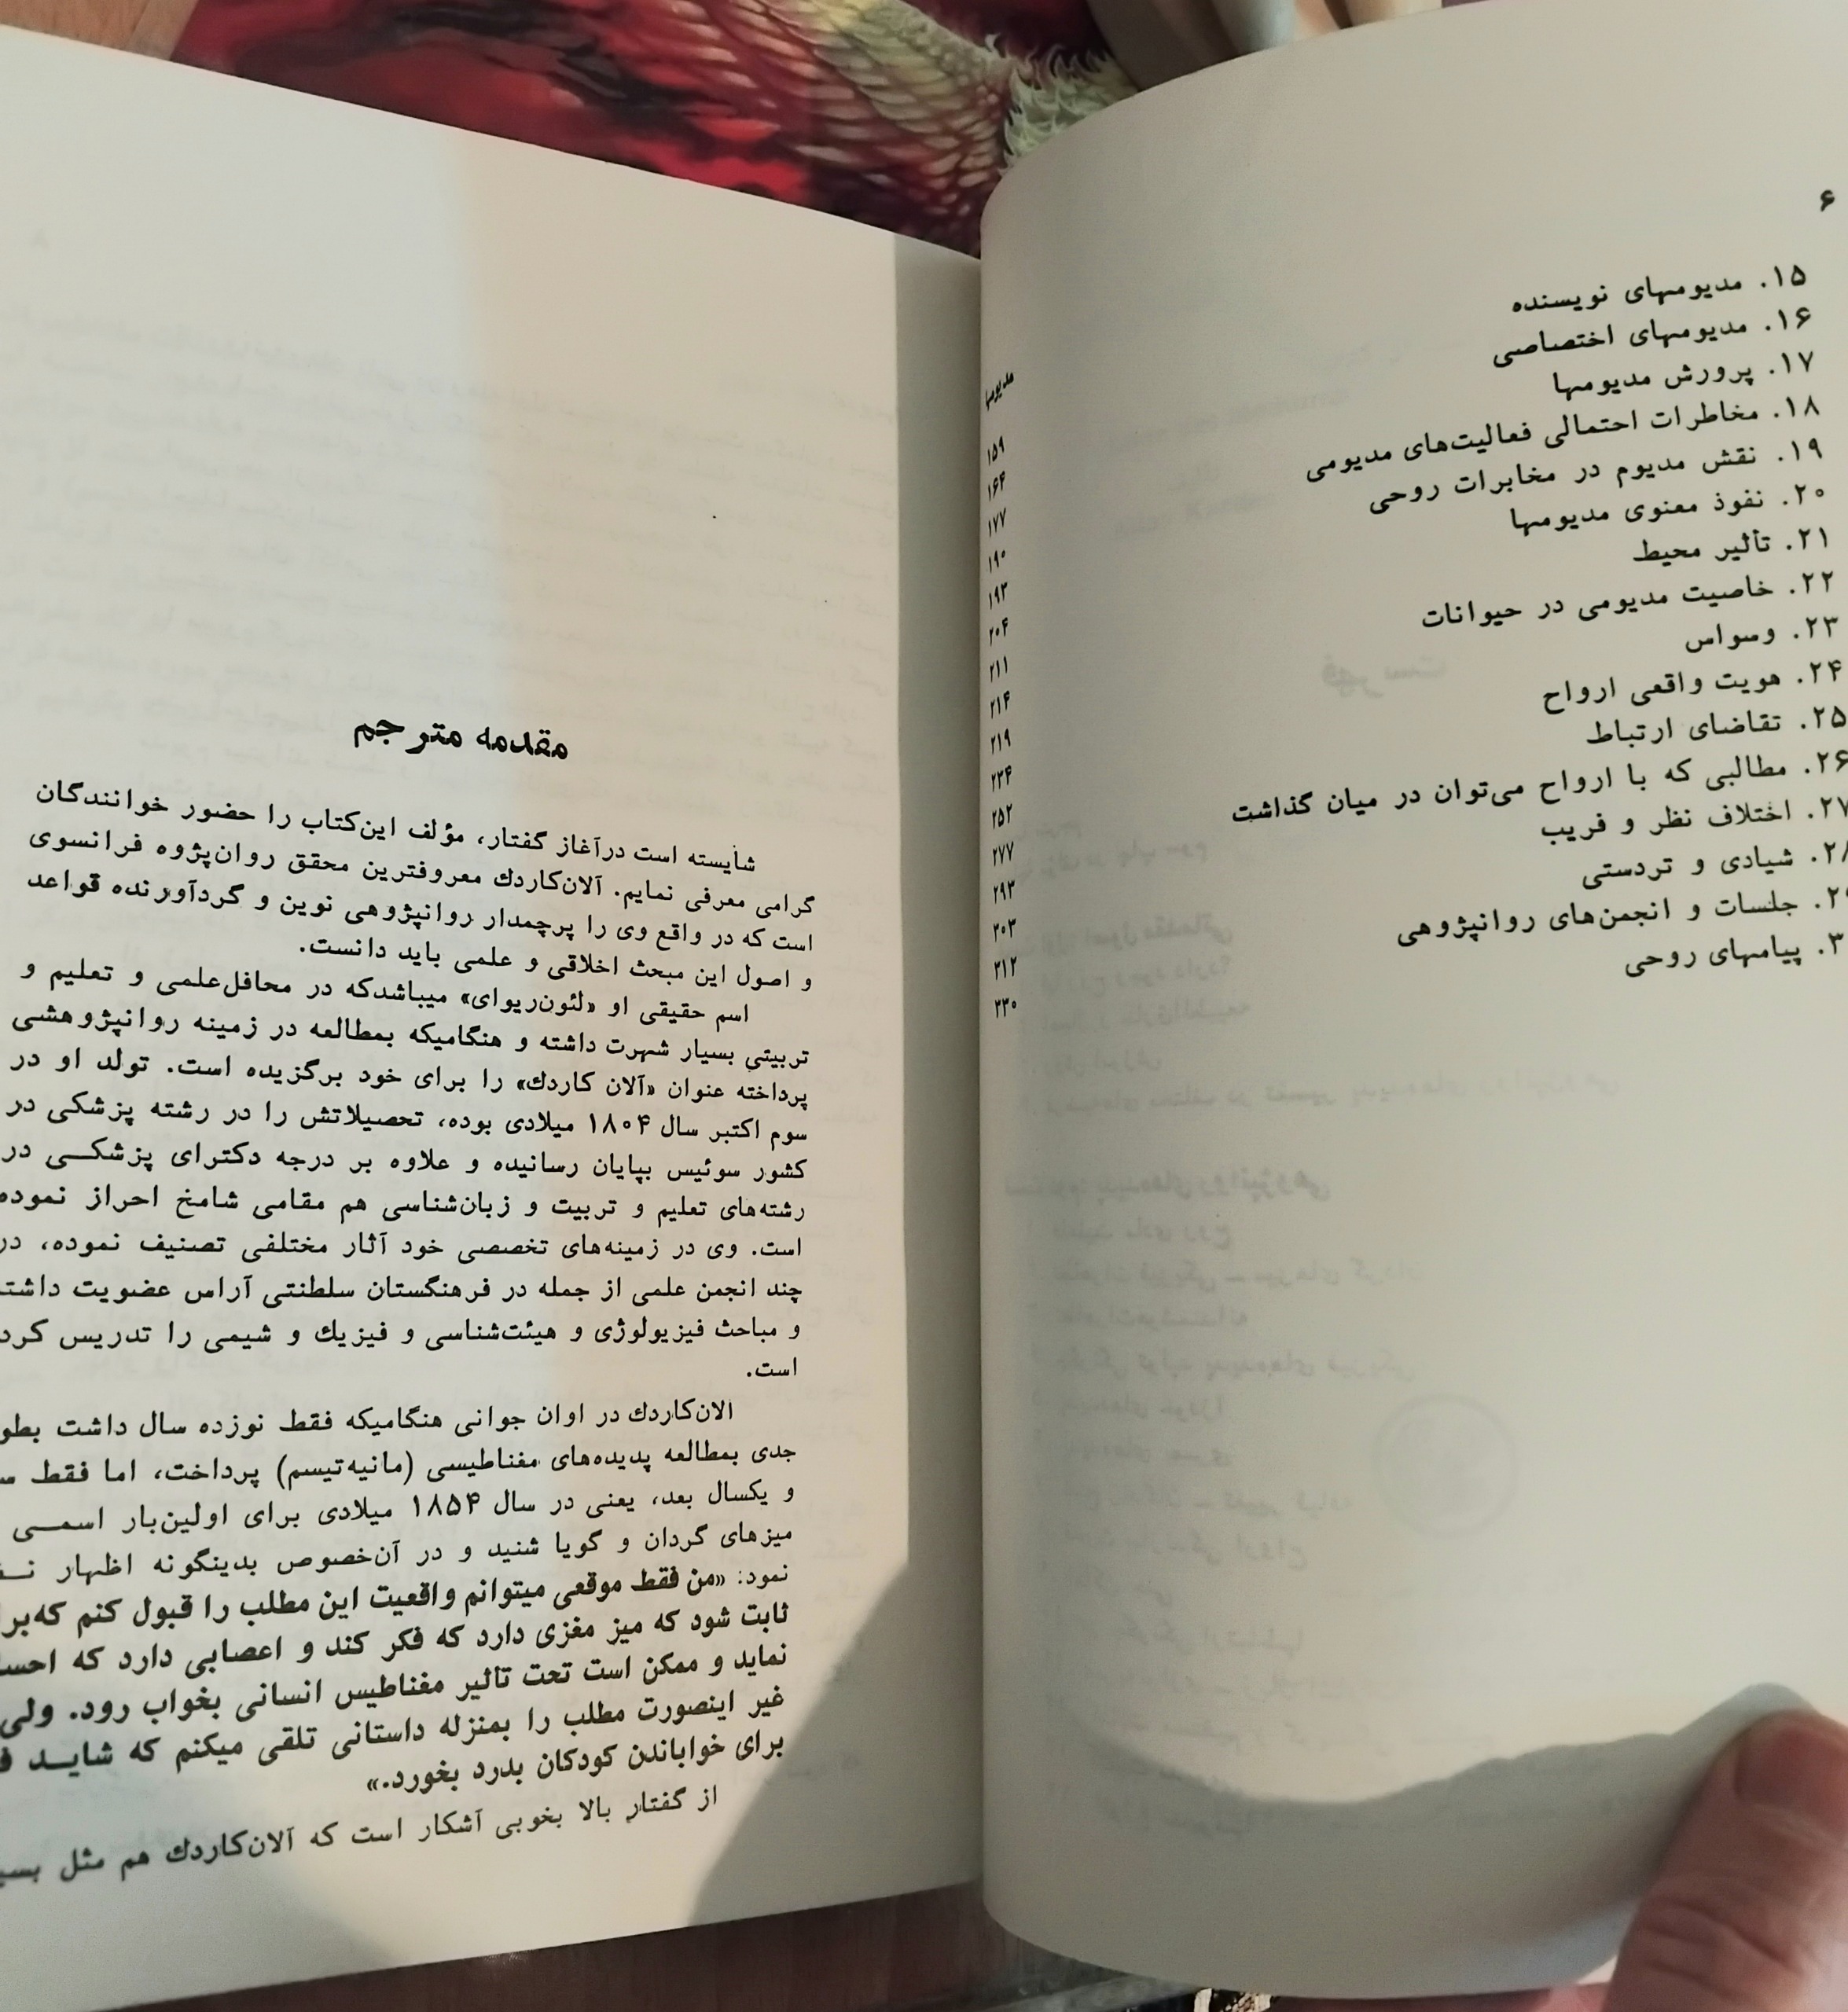 ۶
مدیومها
۱۵. مدیومهای نویسنده ۱۵۹
۱۶. مدیومهای اختصاصی ۱۶۴
۱۷. پرورش مدیومها ۱۷۷
۱۸. مخاطرات احتمالی فعالیت‌های مدیومی ۱۹۰
۱۹. نقش مدیوم در مخابرات روحی ۱۹۳
۲۰. نفوذ معنوی مدیومها ۲۰۴
۲۱. تأثیر محیط ۲۱۱
۲۲. خاصیت مدیومی در حیوانات ۲۱۴
۲۳. وسواس ۲۱۹
۲۴. هویت واقعی ارواح ۲۳۴
۲۵. تقاضای ارتباط ۲۵۲
۲۶. مطالبی که با ارواح می‌توان در میان گذاشت ۲۷۷
۲۷. اختلاف نظر و فریب ۲۹۳
شیادی و تردستی ۳۰۳
جلسات و انجمن‌های روانپژوهی ۳۱۲
پیامهای روحی ۳۳۰
مقدمه مترجم
شایسته است درآغاز گفتار، مؤلف این‌کتاب را حضور خوانندگان
گرامی معرفی نمایم. آلان‌کاردك معروفترین محقق روان‌پژوه فرانسوی
است که در واقع وی را پرچمدار روانپژوهی نوین و گردآورنده قواعد
و اصول این مبحث اخلاقی و علمی باید دانست.
اسم حقیقی او «لئون‌ریوای» میباشدکه در محافل‌علمی و تعلیم و
تربیتی بسیار شهرت داشته و هنگامیکه بمطالعه در زمینه روانپژوهشی
پرداخته عنوان «آلان کاردك» را برای خود برگزیده است. تولد او در
سوم اکتبر سال ۱۸۰۴ میلادی بوده، تحصیلاتش را در رشته پزشکی در
کشور سوئیس بپایان رسانیده و علاوه بر درجه دکترای پزشکی در
رشته‌های تعلیم و تربیت و زبان‌شناسی هم مقامی شامخ احراز نموده
است. وی در زمینه‌های تخصصی خود آثار مختلفی تصنیف نموده، در
چند انجمن علمی از جمله در فرهنگستان سلطنتی آراس عضویت داشته
و مباحث فیزیولوژی و هیئت‌شناسی و فیزیك و شیمی را تدریس کرده
است.
آلان‌کاردك در اوان جوانی هنگامیکه فقط نوزده سال داشت
جدی بمطالعه پدیده‌های مغناطیسی (مانیه‌تیسم) پرداخت، اما فقط
و یکسال بعد، یعنی در سال ۱۸۵۴ میلادی برای اولین‌بار اسمی
میزهای گردان و گویا شنید و در آن‌خصوص بدینگونه اظهار
نمود: «من فقط موقعی میتوانم واقعیت این مطلب را قبول کنم
ثابت شود که میز مغزی دارد که فکر کند و اعصابی دارد که
نماید و ممکن است تحت تاثیر مغناطیس انسانی بخواب رود. ولی
غیر اینصورت مطلب را بمنزله داستانی تلقی میکنم که شاید
برای خواباندن کودکان بدرد بخورد.»
از گفتار بالا بخوبی آشکار است که آلان‌کاردك هم مثل